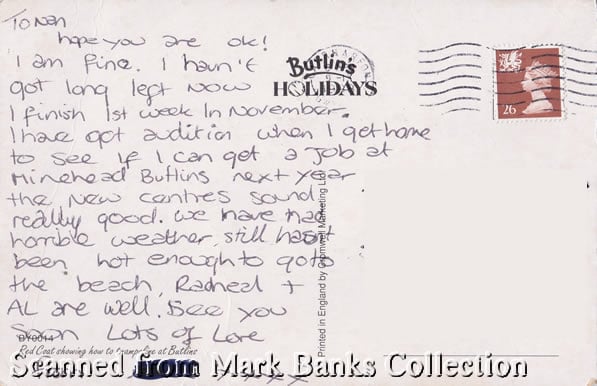 To Nan
hope you are ok!
I am fine. I haven't
got long left now
I finish 1st week in November.
I have got audition when I get home
to see if I can get a job at
Minehead Butlins next year
the new centres sound
really good. we have had
horrible weather, still hasn't
been hot enough to go to
the beach, Racheal +
AL are well. See you
Soon Lots of Love
Butlin's
HOLIDAYS
26
Printed in England by Cromwell Marketing Ltd
BY0014
Red Coat showing how to at Butlins
Scanned from Mark Banks Collection